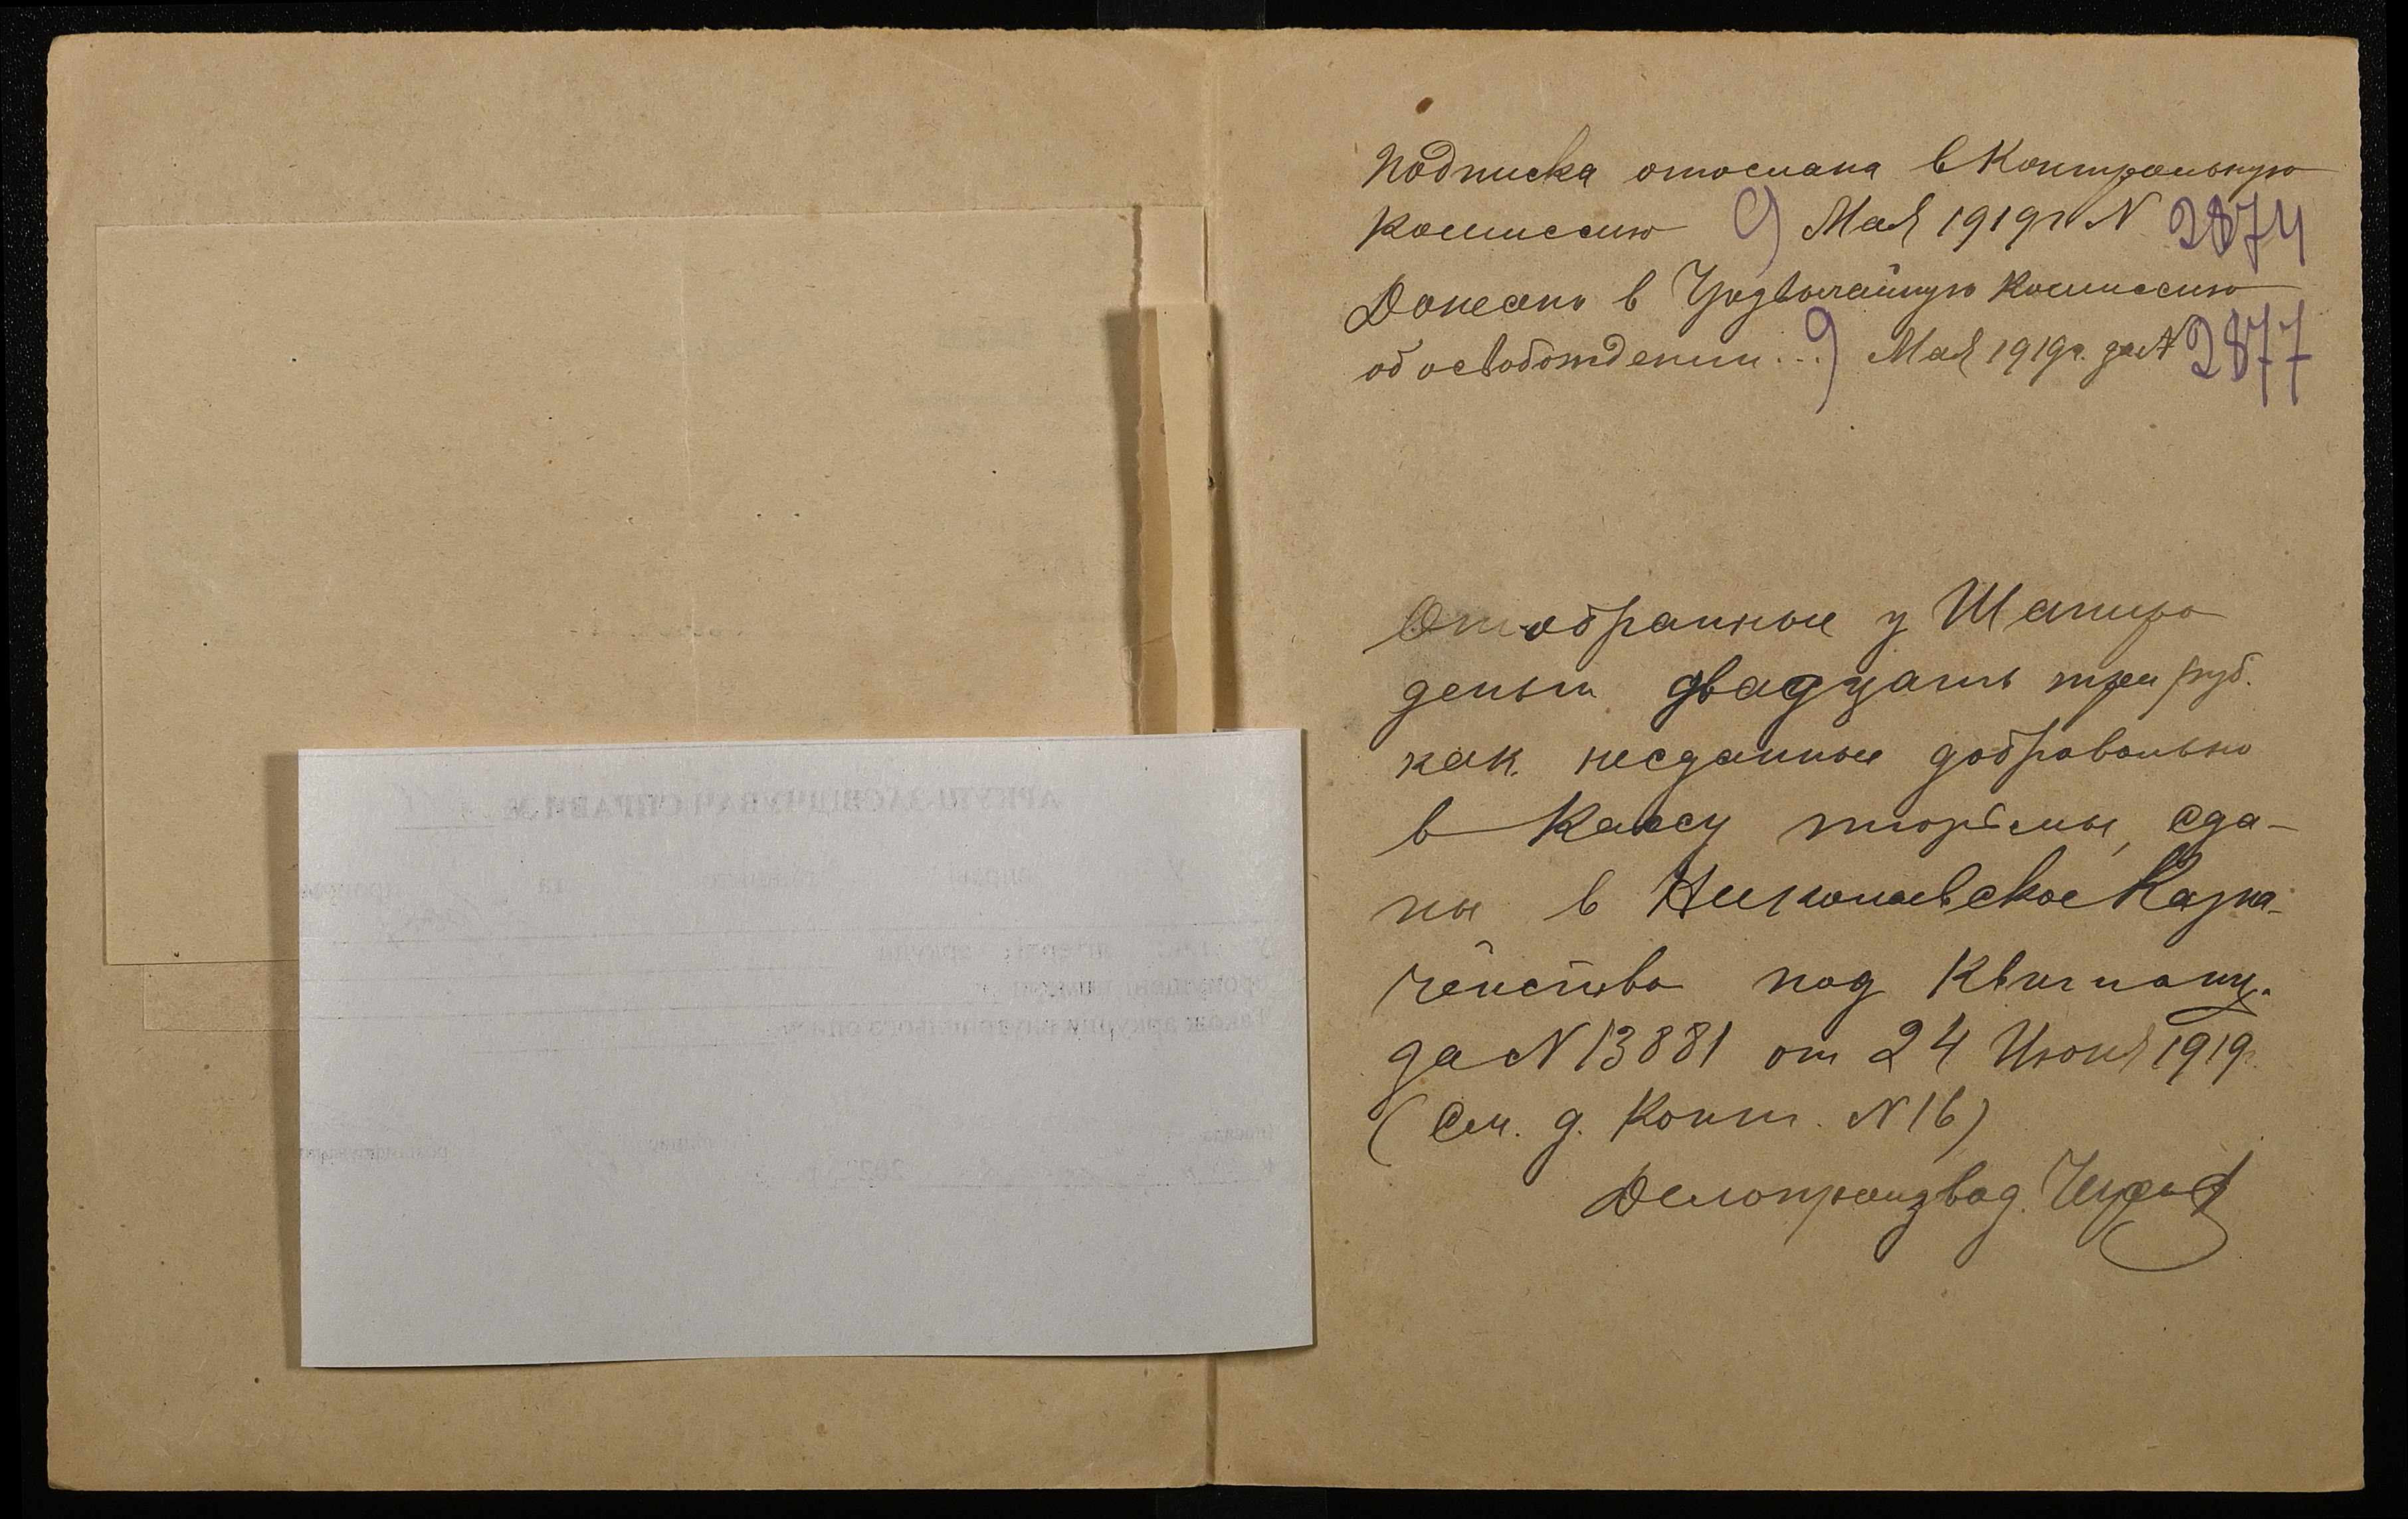 Подписка отослана в Контрольную
Комиссию 9 Мая 1919 г N 2874
Донесено в Чрезвычайную Комиссию
об освобождении... 9 Мая 1919 г. за N 2877
Отобранные у Шапиро
деньги двадцать три руб.
как несданные добровольно
в Кассу тюрьмы, сда-
ны в Николаевское Казна-
чейство под Квитанц.
за N 13881 от 24 Июня 1919 г.
(См. д. Конт. N 16)
Делопроизвод.
АРКУШ-ЗАСВІДЧУВАЧ СПРАВИ №